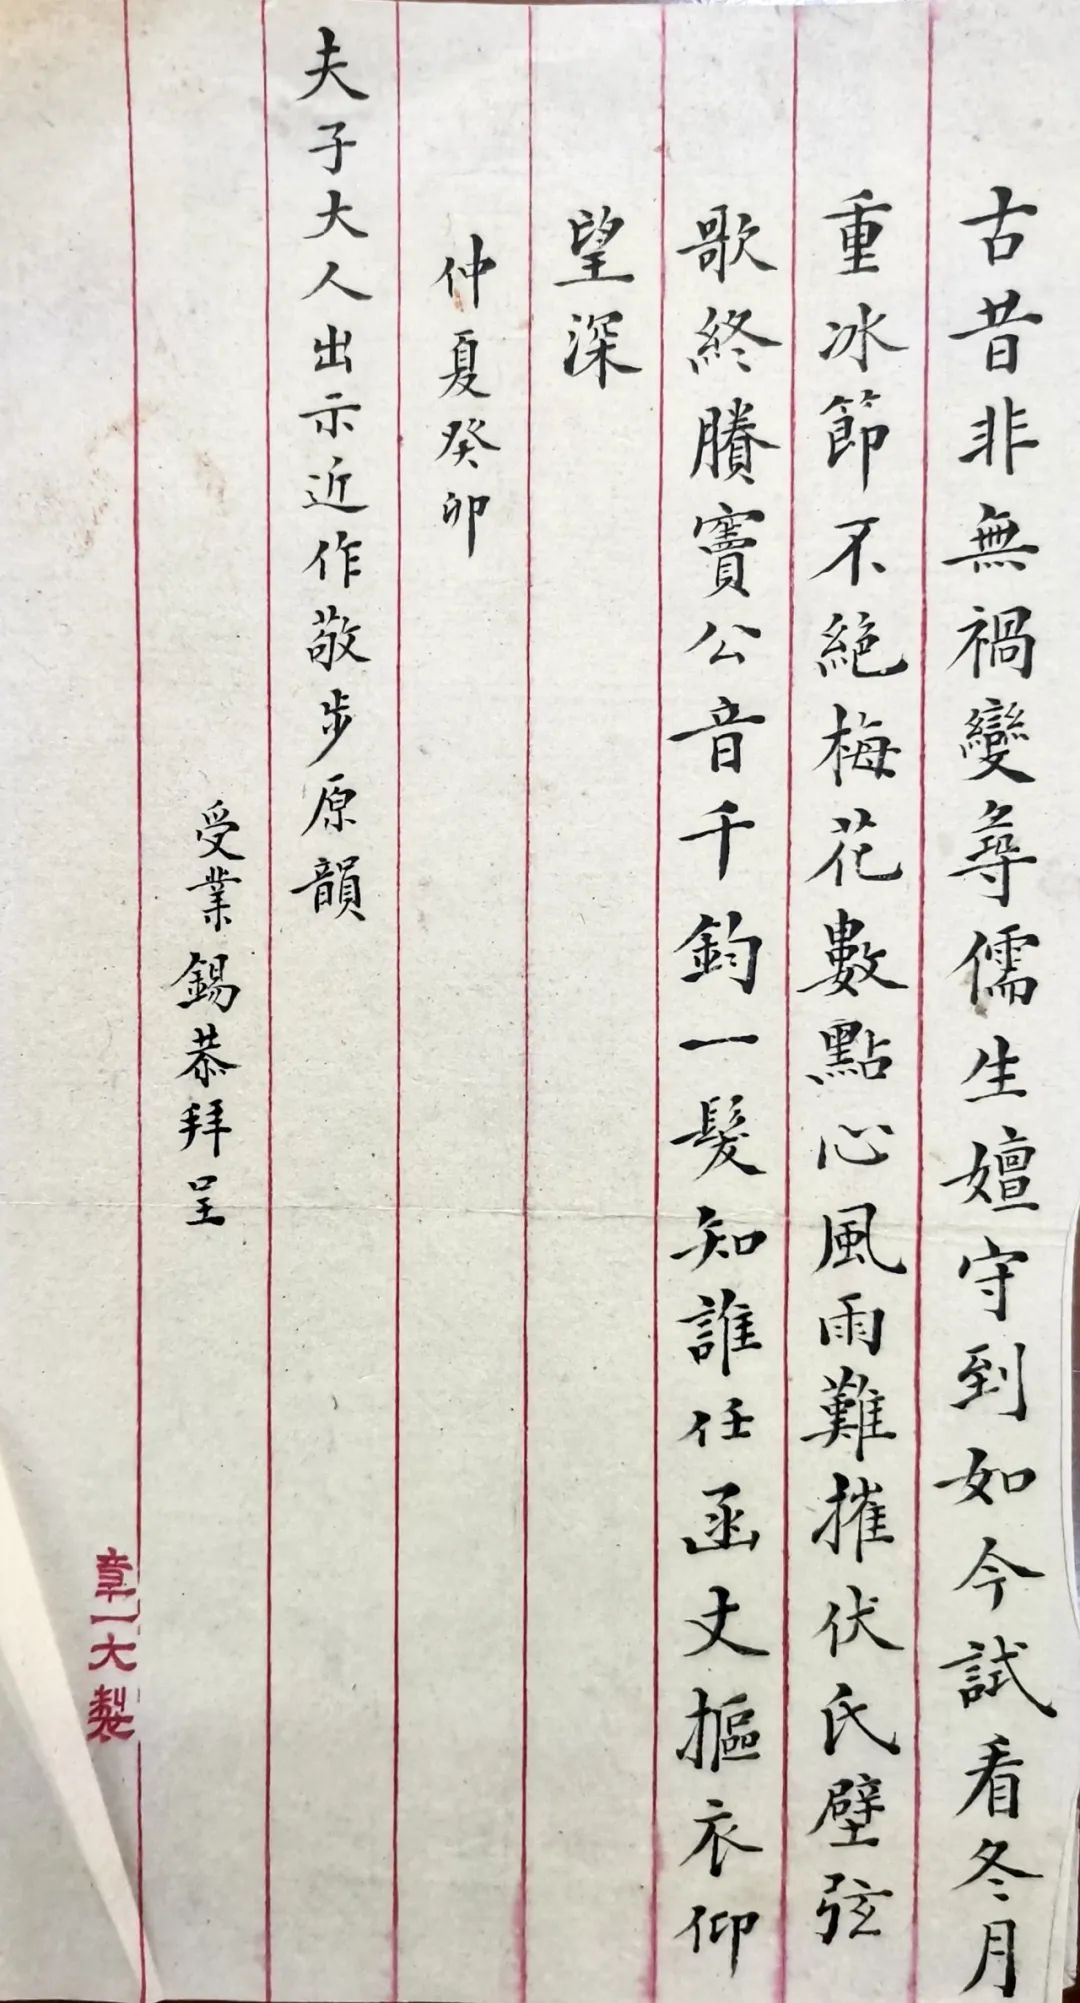 古昔非無禍變尋儒生嬗守到如今試看冬月
重冰節不絕梅花數點心風雨難摧伏氏壁弦
歌終賸竇公音千鈞一髮知誰任函丈摳衣仰
望深
仲夏癸卯
夫子大人出示近作敬步原韻
受業錫恭拜呈
章一大製